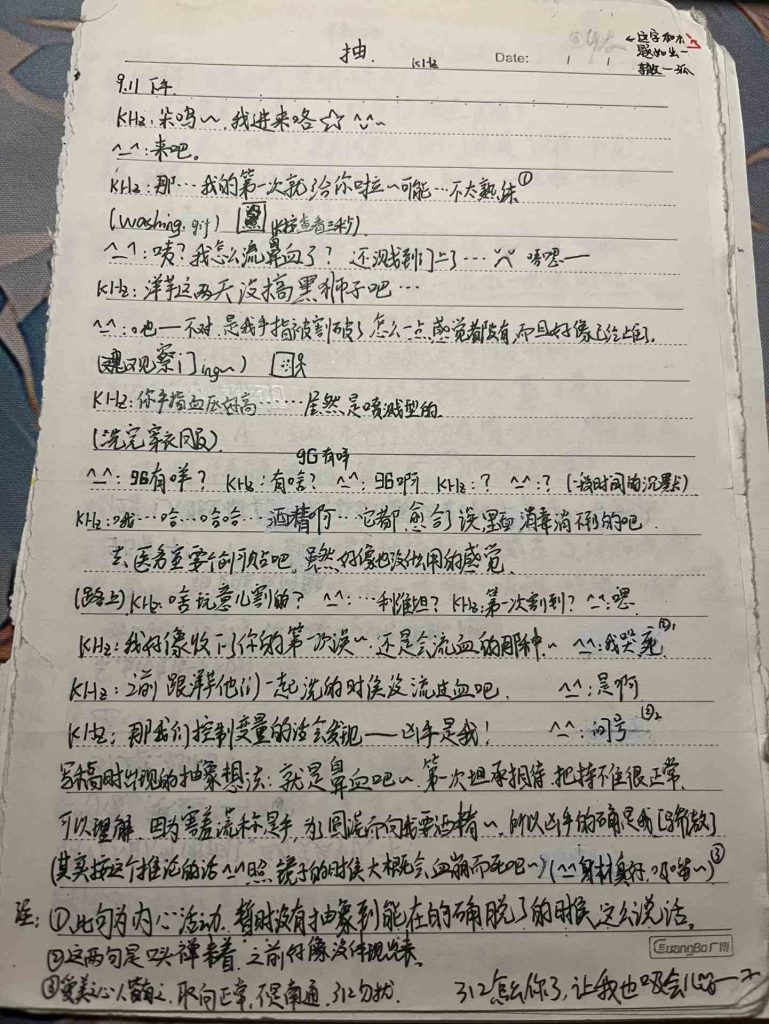 抽.
KHz
Date:
←这字和标
题如出一
辙一孤
9.11 下午
KHz: 呆呜~ 我进来咯☆ ^_^~
^_^: 来吧。
KHz: 那…我的第一次就给你啦~可能…不太熟练①
(washing.gif) (长按查看三秒)
^_^: 咦?我怎么流鼻血了? 还溅到门上了… 唔嗯——
KHz: 洋芋这两天没搞黑狮子吧…
^_^: 也——不对 是我手指被割破了 怎么一点感觉都没有,而且好像已经止住了.
(观察门 ing~)
KHz: 你手指血压好高…… 居然是喷溅型的
(洗完穿衣服)
^_^: 96有咩? KHz: 有啥? ^_^: 96啊 KHz: ? ^_^: ? (一段时间的沉默)
96有咩
KHz: 哦…哈…哈哈…酒精啊…它都愈合了诶黑面 消毒消不到的吧.
去医务室要个创可贴吧, 虽然好像也没什么用的感觉.
(路上) KHz: 啥玩意儿割的? ^_^: … KHz: 第一次割到? ^_^: 嗯
KHz: 我好像收下了你的第一次诶~ 还是会流血的那种~ ^_^: 我哭死②1
KHz: 之前跟洋芋他们一起洗的时候没流过血吧. ^_^: 是啊
KHz: 那我们控制变量的话会发现——凶手是我! ^_^: 问号②2
写稿时出现的抽象想法: 就是鼻血吧~ 第一次坦承相待 把持不住很正常.
可以理解, 因为害羞谎称是手, 为了圆谎而向我要酒精~, 所以凶手的确是我 [骄傲]
(其实按这个推论的话 ^_^照镜子的时候大概会血崩而死吧~) (^_^身材真好, 嘻~)③
注: ①此句为内心活动. 暂时没有抽象到能在的确脱了的时候这么说话.
②这两句是口头禅来着, 之前好像没体现出来.
③爱美之心人皆有之, 取向正常, 不是南通, 312勿扰.
GuangBo 广博
312怎么你了, 让我也